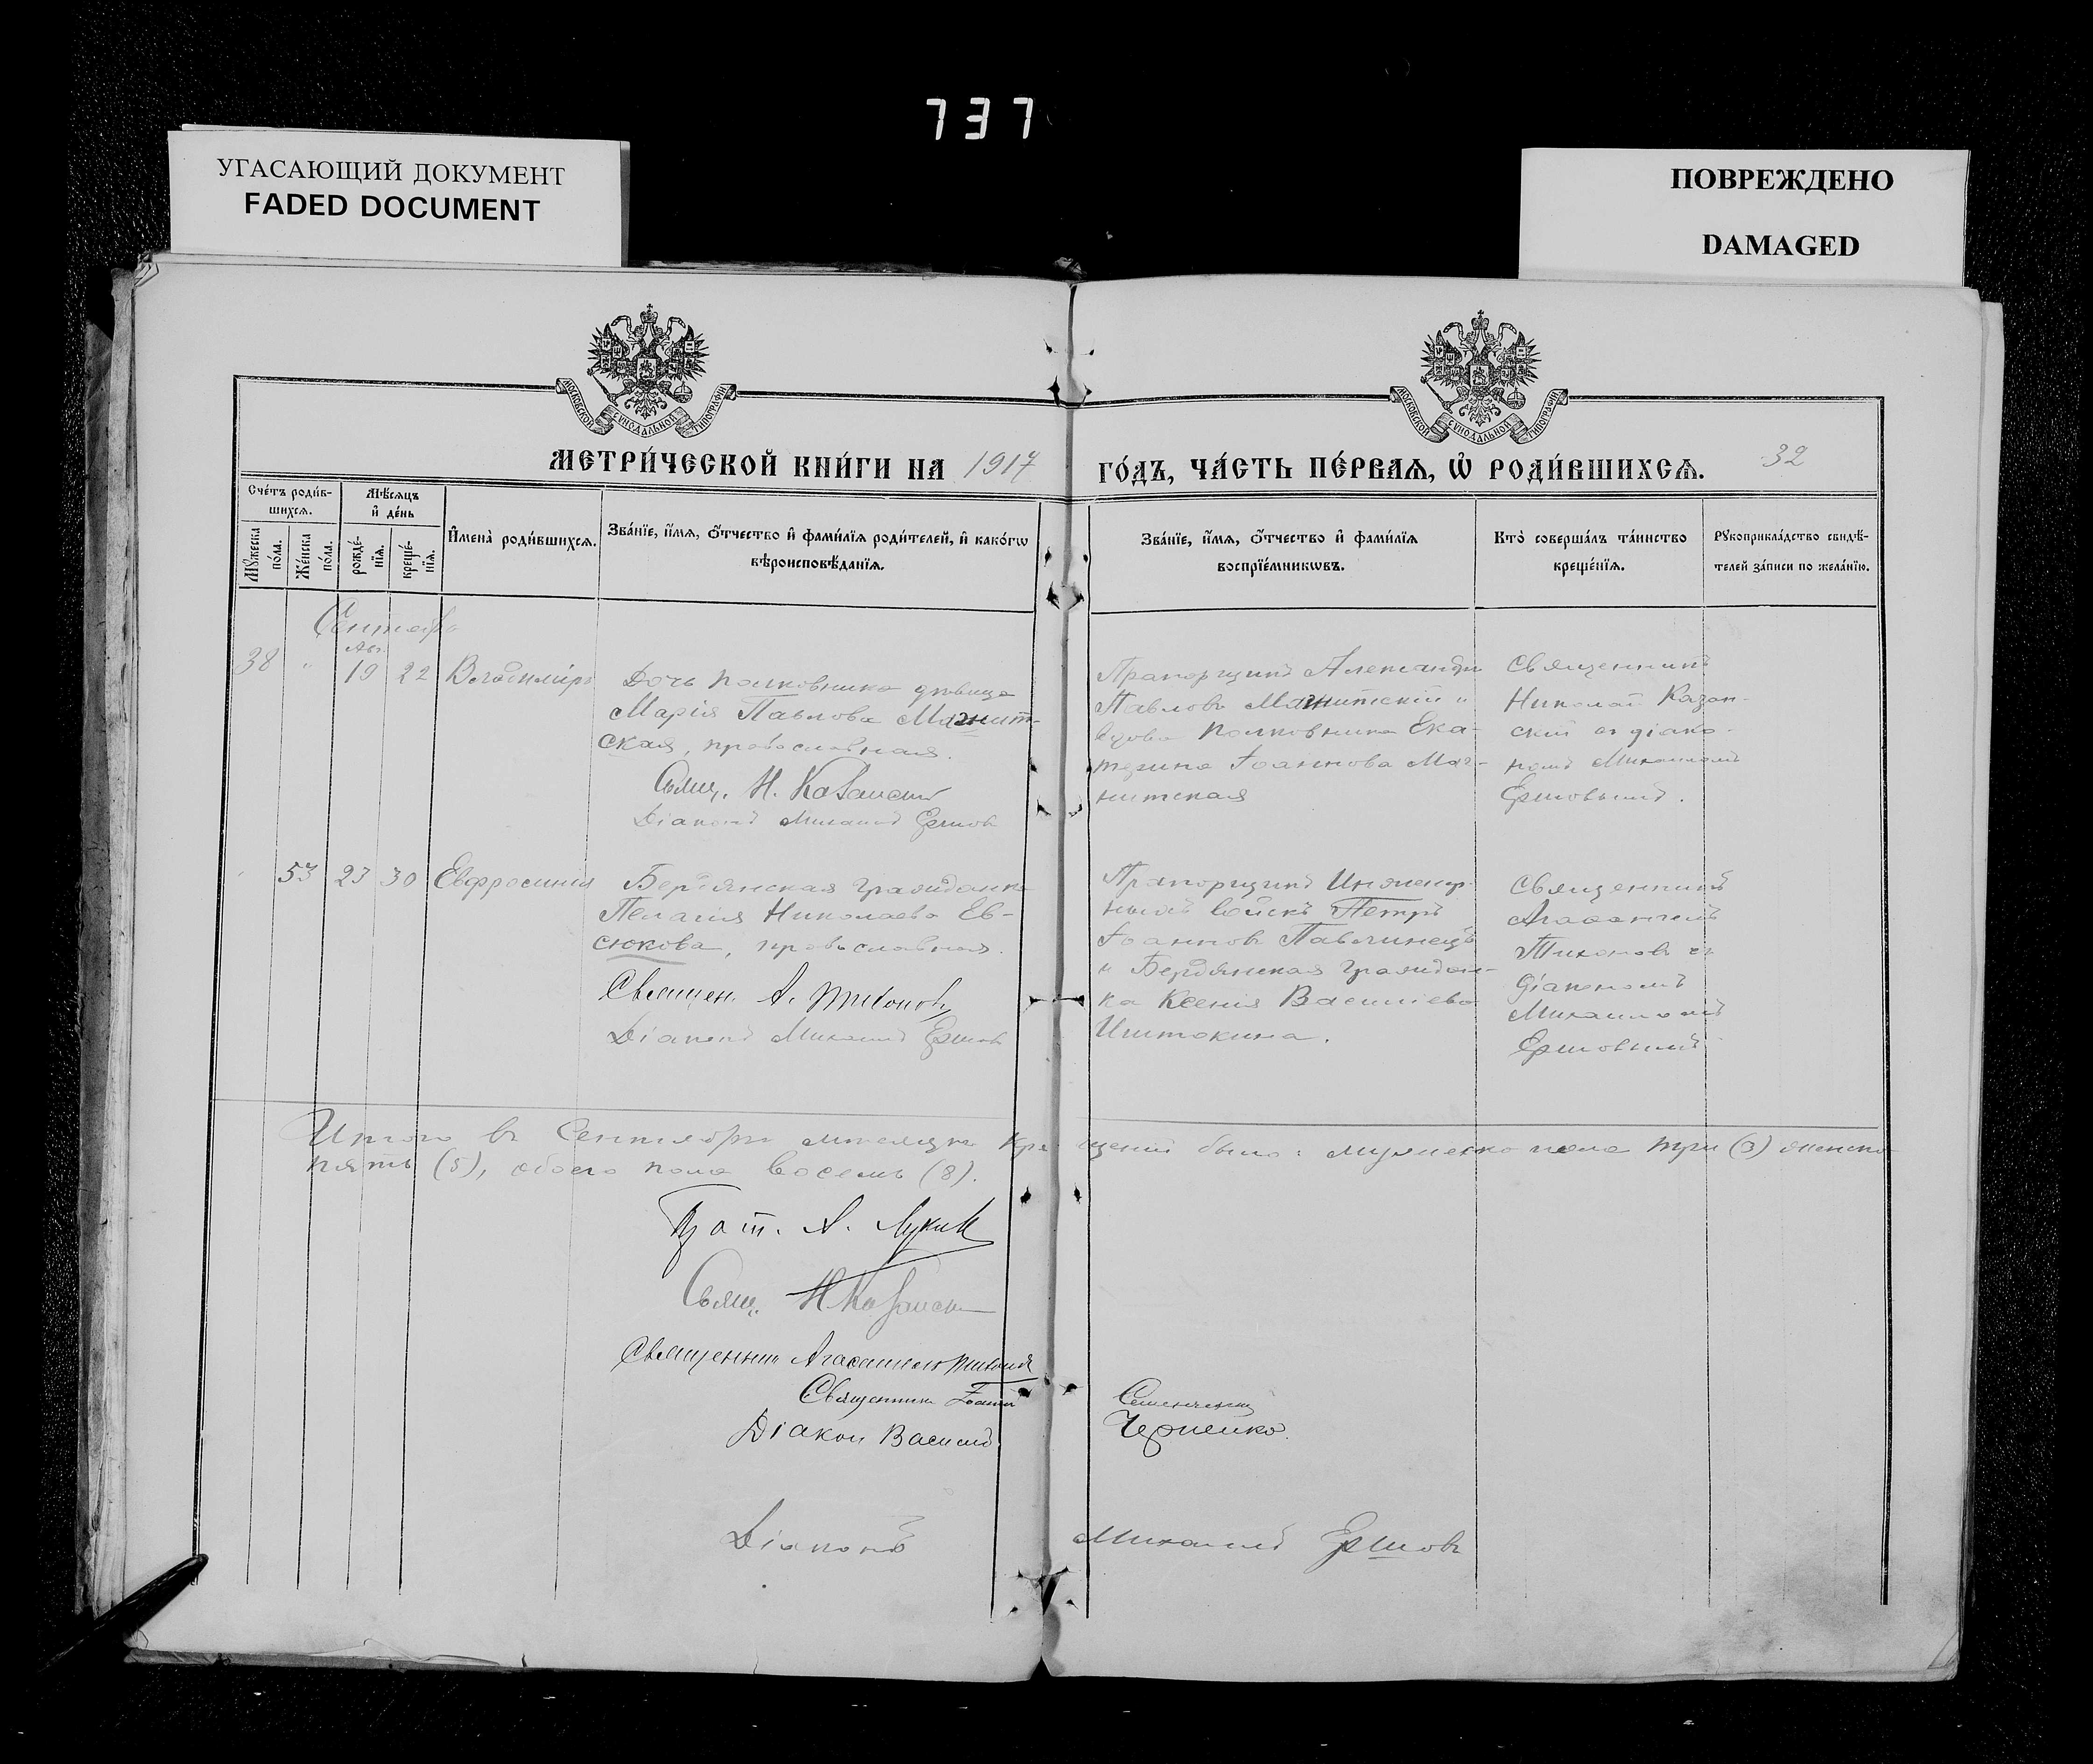 737
УГАСАЮЩИЙ ДОКУМЕНТ
FADED DOCUMENT
ПОВРЕЖДЕНО
DAMAGED
МОСКОВСКОЙ СУНОДАЛЬНОЙ ТИПОГРАФІИ
МОСКОВСКОЙ СУНОДАЛЬНОЙ ТИПОГРАФІИ
МЕТРИ́ЧЕСКОЙ КНИ́ГИ НА 1917 ГО́ДЪ, ЧА́СТЬ ПЕ́РВАѦ, Ѡ РОДИ́ВШИХСѦ. 32
Сче́тъ роди́в-
шихсѧ.
Мꙋжеска по́ла.
Же́нска по́ла.
Мѣ́сѧцъ
и҆ де́нь
рожде́-
нїѧ.
креще́-
нїѧ.
И҆мена̀ роди́вшихсѧ.
Зва́нїе, и҆́мѧ, ѻ҆́тчество и҆ фами́лїѧ роди́телей, и҆ како́гѡ
вѣроисповѣ́данїѧ.
Зва́нїе, и҆́мѧ, ѻ҆́тчество и҆ фами́лїѧ
воспрїе́мникѡвъ.
Кто̀ соверша́лъ та́инство
креще́нїѧ.
Рꙋкоприкла́дство свидѣ́-
телей за́писи по жела́нїю.
Сентябрь
Авг.
38 " 19 22 Владиміръ
Дочь полковника дѣвица
Марія Павлова Магнит-
ская, православная.
Свящ. Н. Казанскій
Діаконъ Михаилъ Ершовъ
Прапорщикъ Александръ
Павловъ Магнитскій и
вдова полковника Ека-
терина Іоаннова Маг-
нитская
Священникъ
Николай Казан-
скій съ діако-
номъ Михаиломъ
Ершовымъ.
53 23 30 Евфросинія
Бердянская гражданка
Пелагія Николаева Ев-
сюкова, православная.
Священ. А. Тихоновъ
Діаконъ Михаилъ Ершовъ
Прапорщикъ Инженер-
ныхъ войскъ Петръ
Іоанновъ Павлинецъ
и Бердянская граждан-
ка Ксенія Василіева
Иштокина.
Священникъ
Агафангелъ
Тихоновъ съ
діакономъ
Михаиломъ
Ершовымъ
Итого въ Сентябрѣ мѣсяцѣ крещеній было: мужеска пола три (3) женска
пять (5), обоего пола восемь (8).
Прот. А.
Свящ. Н Казанскій
Священникъ Агафангелъ Тихоновъ
Священникъ Іоаннъ
Діакон Василій Черненко
Діаконъ Михаилъ Ершовъ